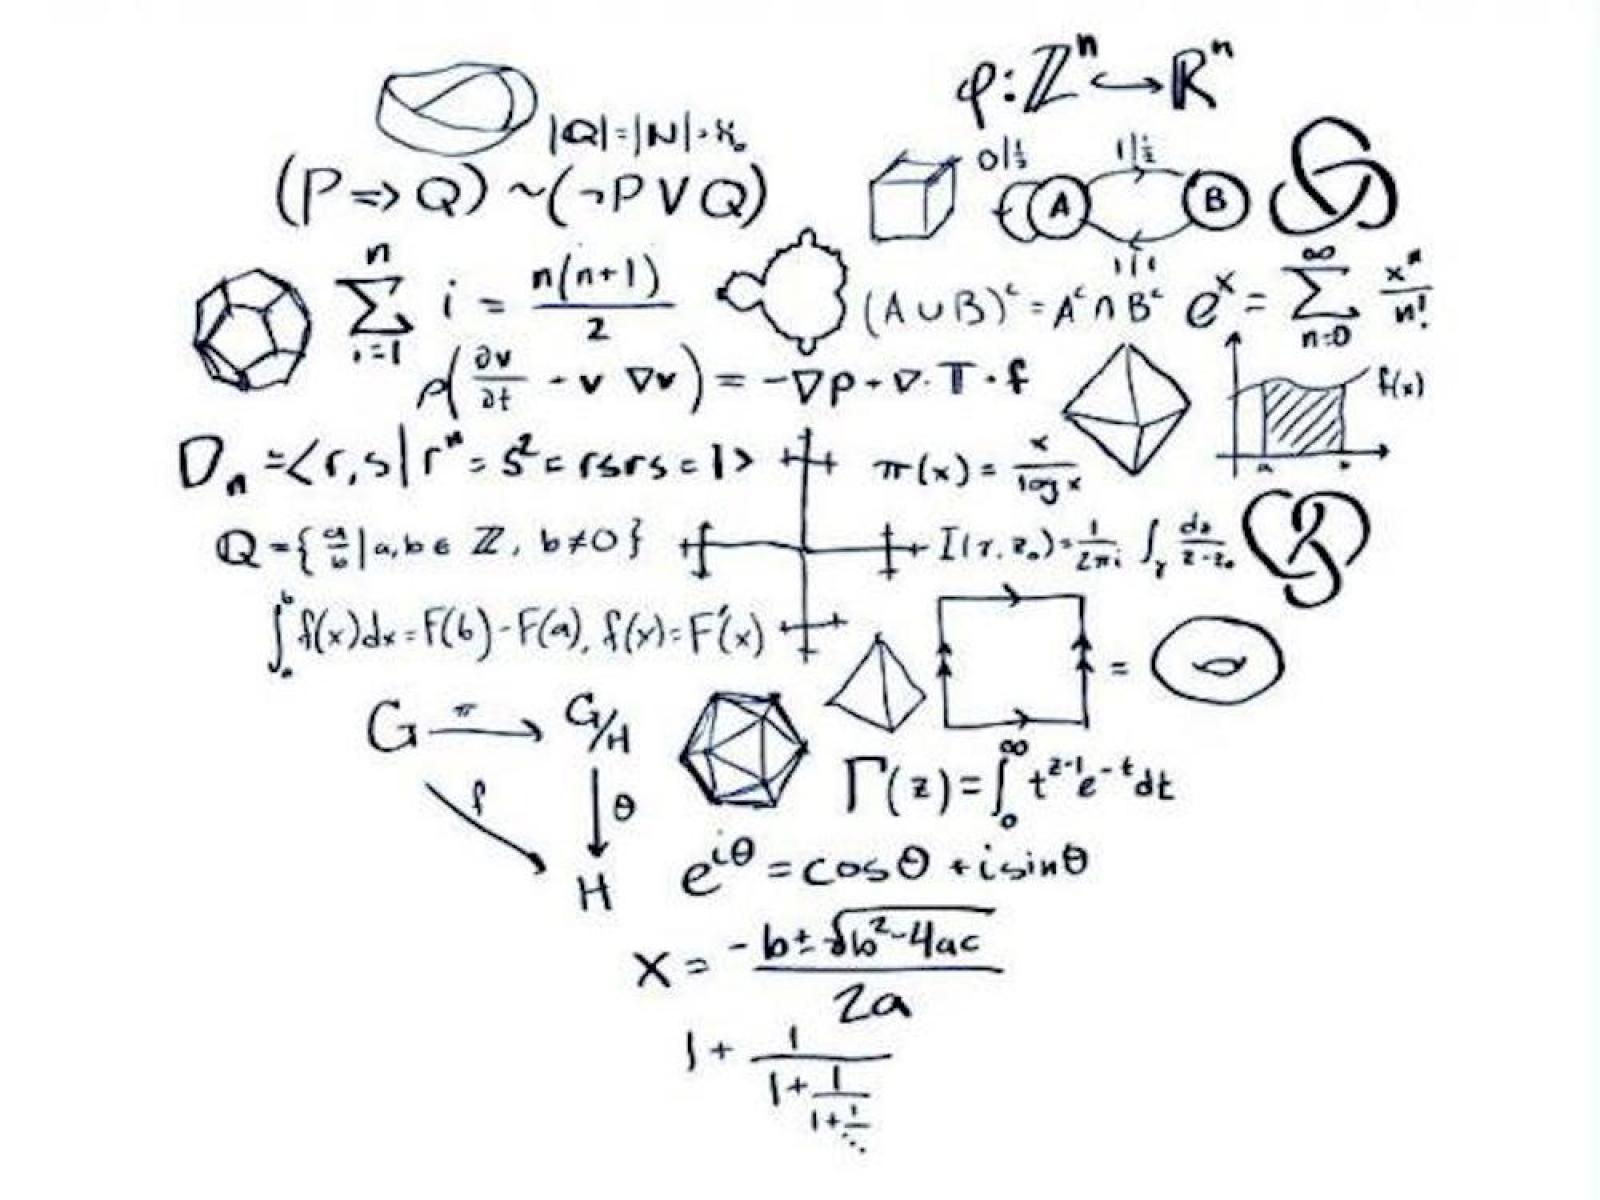 φ: ℤⁿ ↪ ℝⁿ
|Q| = |N| = ℵ₀
(P ⇒ Q) ~ (¬P ∨ Q)
0|½ 1|½
A B
1|1
n
∑ i = n(n+1)/2
i=1
(A ∪ B)ᶜ = Aᶜ ∩ Bᶜ
eˣ = ∑ xⁿ/n!
∞
n=0
ρ(∂v/∂t + v ∇v) = -∇p + ∇·T + f
f(x)
a b
Dₙ = <r, s | rⁿ = s² = rsrs = 1>
π(x) = x/log x
Q = {a/b | a, b ∈ ℤ, b ≠ 0}
I(γ, z₀) = 1/2πi ∫γ dz/z-z₀
∫ₐᵇ f(x)dx = F(b) - F(a), f(x) = F'(x)
=
G π G/H
f θ
H
Γ(z) = ∫₀^∞ t^z-1 e^-t dt
e^iθ = cosθ + isinθ
x = -b ± √b²-4ac / 2a
1 + 1/1 + 1/1 + 1/⋱